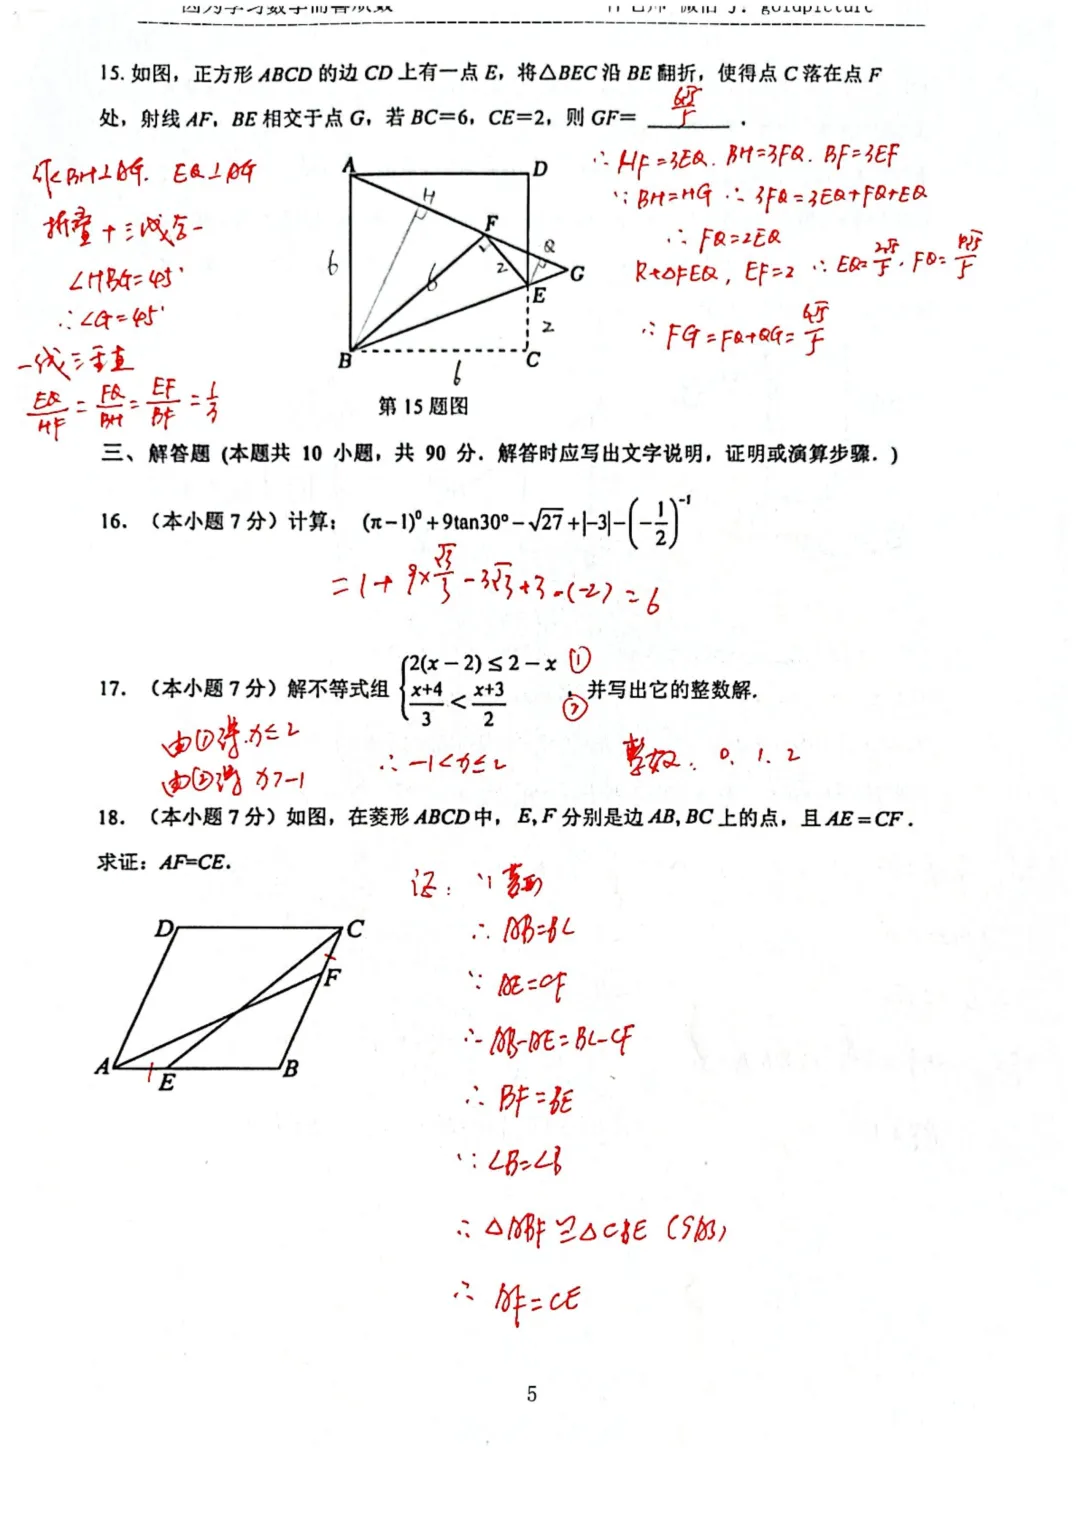 15. 如图，正方形 ABCD 的边 CD 上有一点 E，将△BEC 沿 BE 翻折，使得点 C 落在点 F
处，射线 AF，BE 相交于点 G，若 BC＝6，CE＝2，则 GF＝ 6√5/5 ．
作BH⊥AG. EQ⊥AG
折叠+三线合一
∠HBG=45°
∴∠G=45°
一线三垂直
EQ/HF = FQ/BH = EF/BF = 1/3
A
D
H
F
Q
G
E
B
C
6
6
2
2
6
∴HF=3EQ. BH=3FQ. BF=3EF
∵BH=HG ∴3FQ=3EQ+FQ+EQ
∴FQ=2EQ
Rt△FEQ, EF=2 ∴EQ=2√5/5, FQ=4√5/5
∴FG=FQ+QG=6√5/5
第 15 题图
三、解答题 (本题共 10 小题，共 90 分．解答时应写出文字说明，证明或演算步骤．)
16. （本小题 7 分）计算： (π−1)⁰+9tan30°−√27+|−3|−(−1/2)⁻¹
=1+9×√3/3−3√3+3−(−2)=6
17. （本小题 7 分）解不等式组 {2(x−2)≤2−x ① (x+4)/3 < (x+3)/2 ② ，并写出它的整数解．
由①得 x≤2
由②得 x>−1
∴−1<x≤2
整数: 0. 1. 2
18. （本小题 7 分）如图，在菱形 ABCD 中， E, F 分别是边 AB, BC 上的点，且 AE=CF．
求证：AF=CE．
D
C
F
A
E
B
证: ∵菱形
∴AB=BC
∵AE=CF
∴AB−AE=BC−CF
∴BF=BE
∵∠B=∠B
∴△ABF≌△CBE (SAS)
∴AF=CE
5